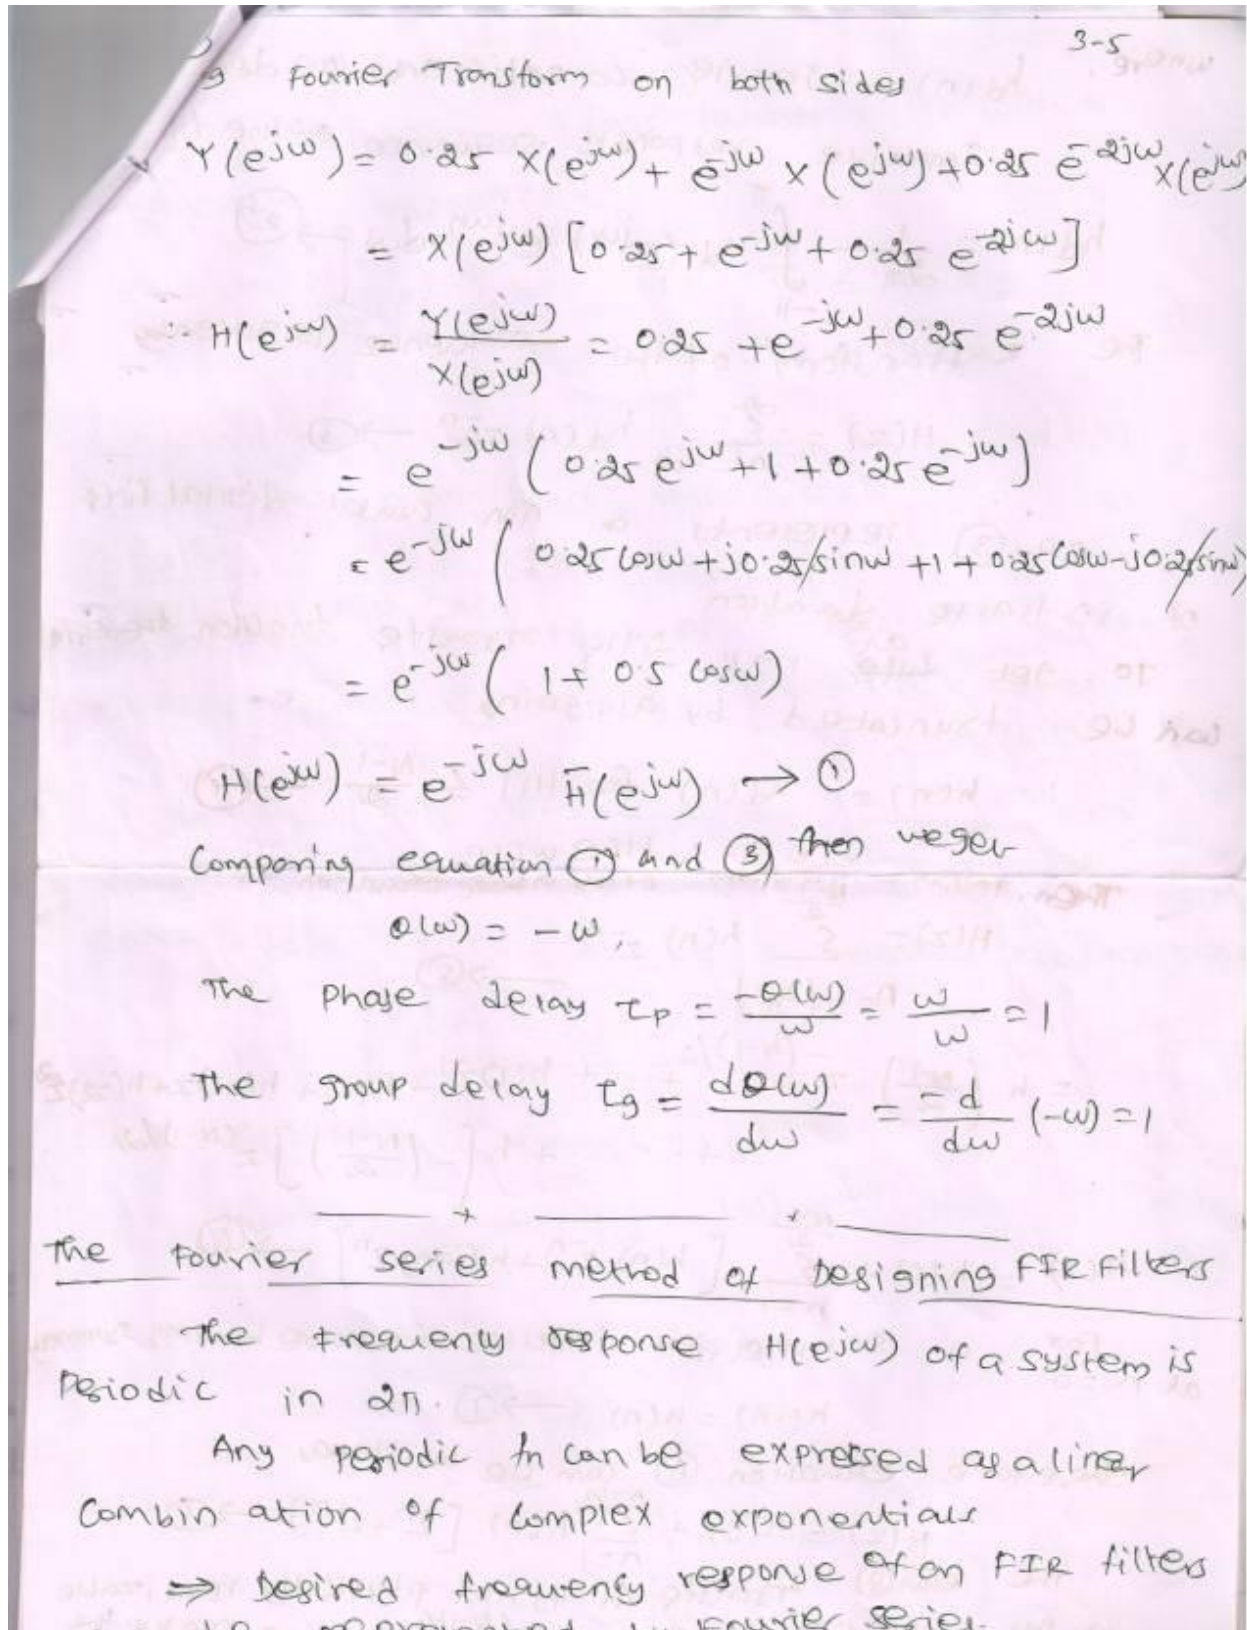 3-5
g Fourier Transform on both sides
Y(e^jω) = 0.25 X(e^jω) + e^-jω X(e^jω) + 0.25 e^-2jω X(e^jω)
= X(e^jω) [0.25 + e^-jω + 0.25 e^-2jω]
∴ H(e^jω) = Y(e^jω) / X(e^jω) = 0.25 + e^-jω + 0.25 e^-2jω
= e^-jω (0.25 e^jω + 1 + 0.25 e^-jω)
= e^-jω (0.25 cosω + j0.25 sinω + 1 + 0.25 cosω - j0.25 sinω)
= e^-jω (1 + 0.5 cosω)
H(e^jω) = e^-jω H̅(e^jω) → ①
Comparing equation ① and ③ then we get
θ(ω) = -ω,
The Phase delay τp = -θ(ω)/ω = ω/ω = 1
The group delay τg = dθ(ω)/dω = -d/dω (-ω) = 1
The Fourier series method of Designing FIR Filters
The frequency response H(e^jω) of a system is
Periodic in 2π.
Any periodic fn can be expressed as a linear
Combin ation of Complex exponentials
⇒ Desired frequency response of an FIR filters
Fourier series.